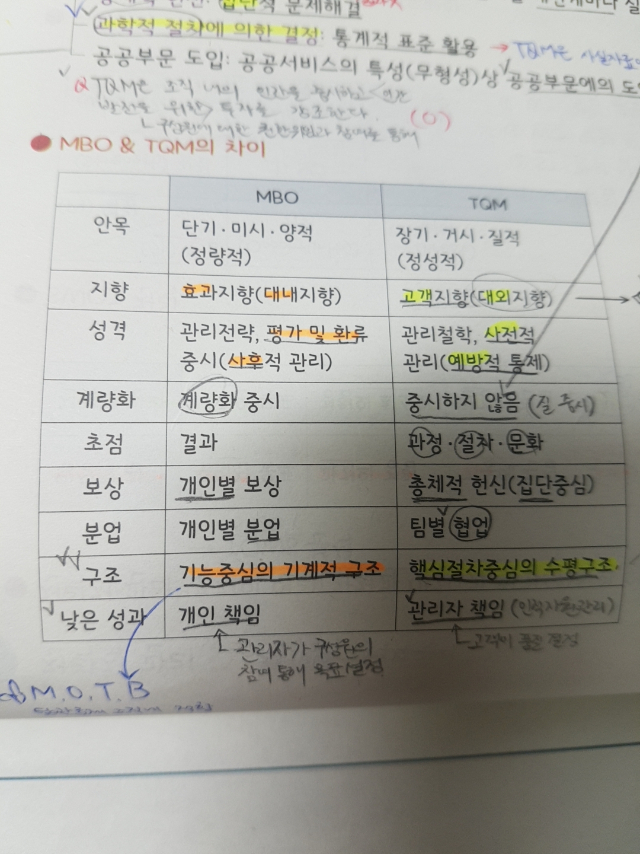 집단적 문제해결
과학적 절차에 의한 결정: 통계적 표준 활용 → TQM은
공공부문 도입: 공공서비스의 특성(무형성)상 공공부문에의 도
Q TQM은 조직 내의 인간을 중시하고 인간
발전을 위한 투자를 강조한다. (O)
● MBO & TQM의 차이
MBO TQM
안목 단기·미시·양적 (정량적) 장기·거시·질적 (정성적)
지향 효과지향(대내지향) 고객지향(대외지향)
성격 관리전략, 평가 및 환류 중시(사후적 관리) 관리철학, 사전적 관리(예방적 통제)
계량화 계량화 중시 중시하지 않음 (질 중시)
초점 결과 과정·절차·문화
보상 개인별 보상 총체적 헌신(집단중심)
분업 개인별 분업 팀별 협업
구조 기능중심의 기계적 구조 핵심절차중심의 수평구조
낮은 성과 개인 책임 관리자 책임 (인적자원관리)
관리자가 구성원의
참여 통해 목표설정
고객이 품질 결정
M.O.T.B